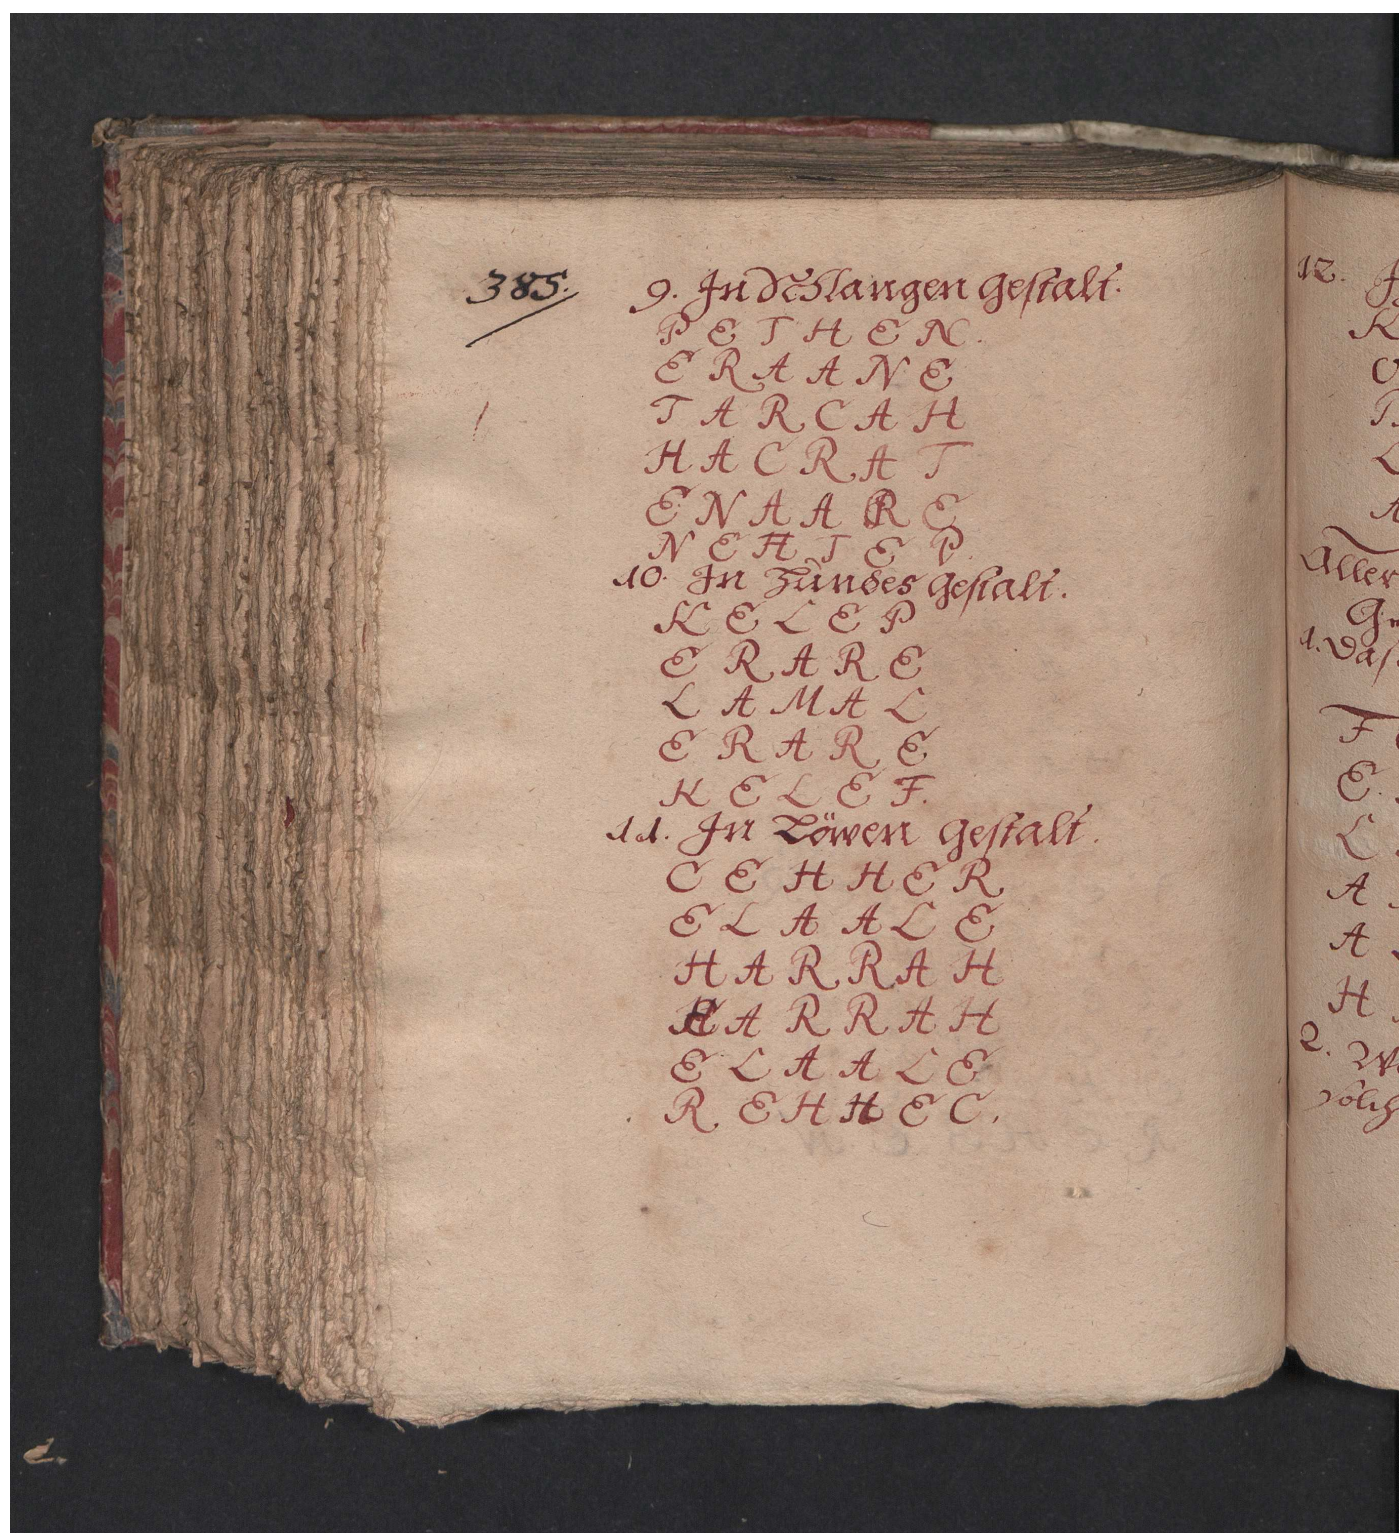 385.
9. In Schlangen Gestalt.
P E T H E N.
E R A A N E
T A R C A H
H A C R A T
E N A A R E
N E H T E P
10. In Hundes Gestalt.
K E L E P
E R A R E
L A M A L
E R A R E
K E L E F.
11. In Löwen Gestalt.
C E H H E R
E L A A L E
H A R R A H
H A R R A H
E L A A L E
R E H H E C.
12.
K
L
A
Aller
1. Das
F
E.
L
A
A
H
2.